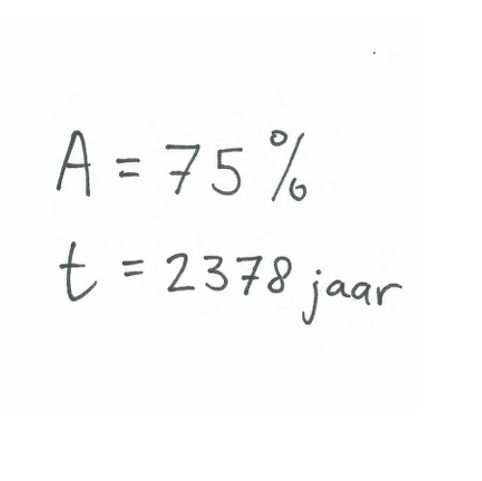 A = 75%
t = 2378 jaar